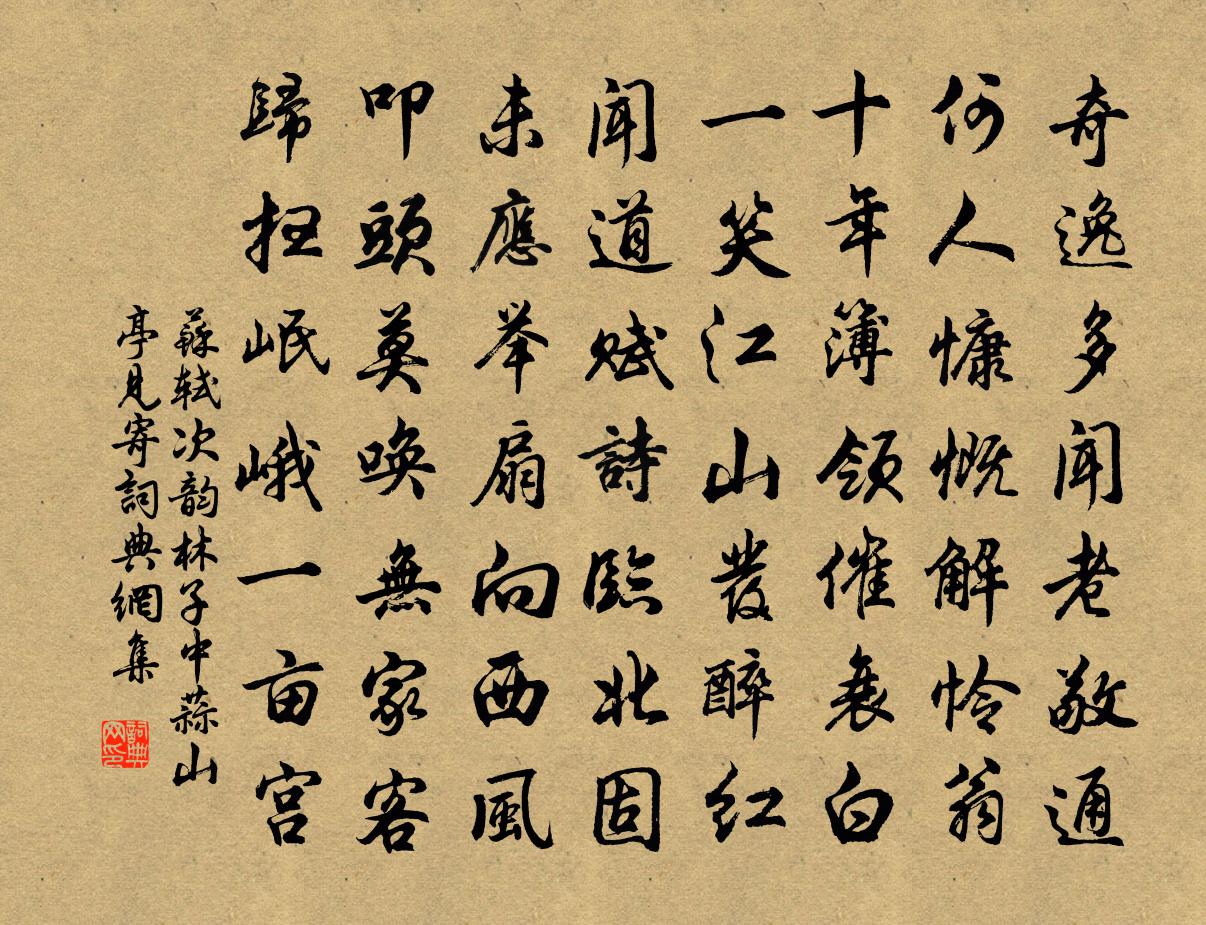 奇逸多聞老敬通
何人慷慨解怜翁
十年簿領催衰白
一笑江山發醉紅
聞道賦詩臨北固
未應举扇向西風
叩頭莫唤無家客
歸扫岷峨一亩宫
蘇轼次韵林子中蒜山
亭見寄詞典網集
詞典
网印